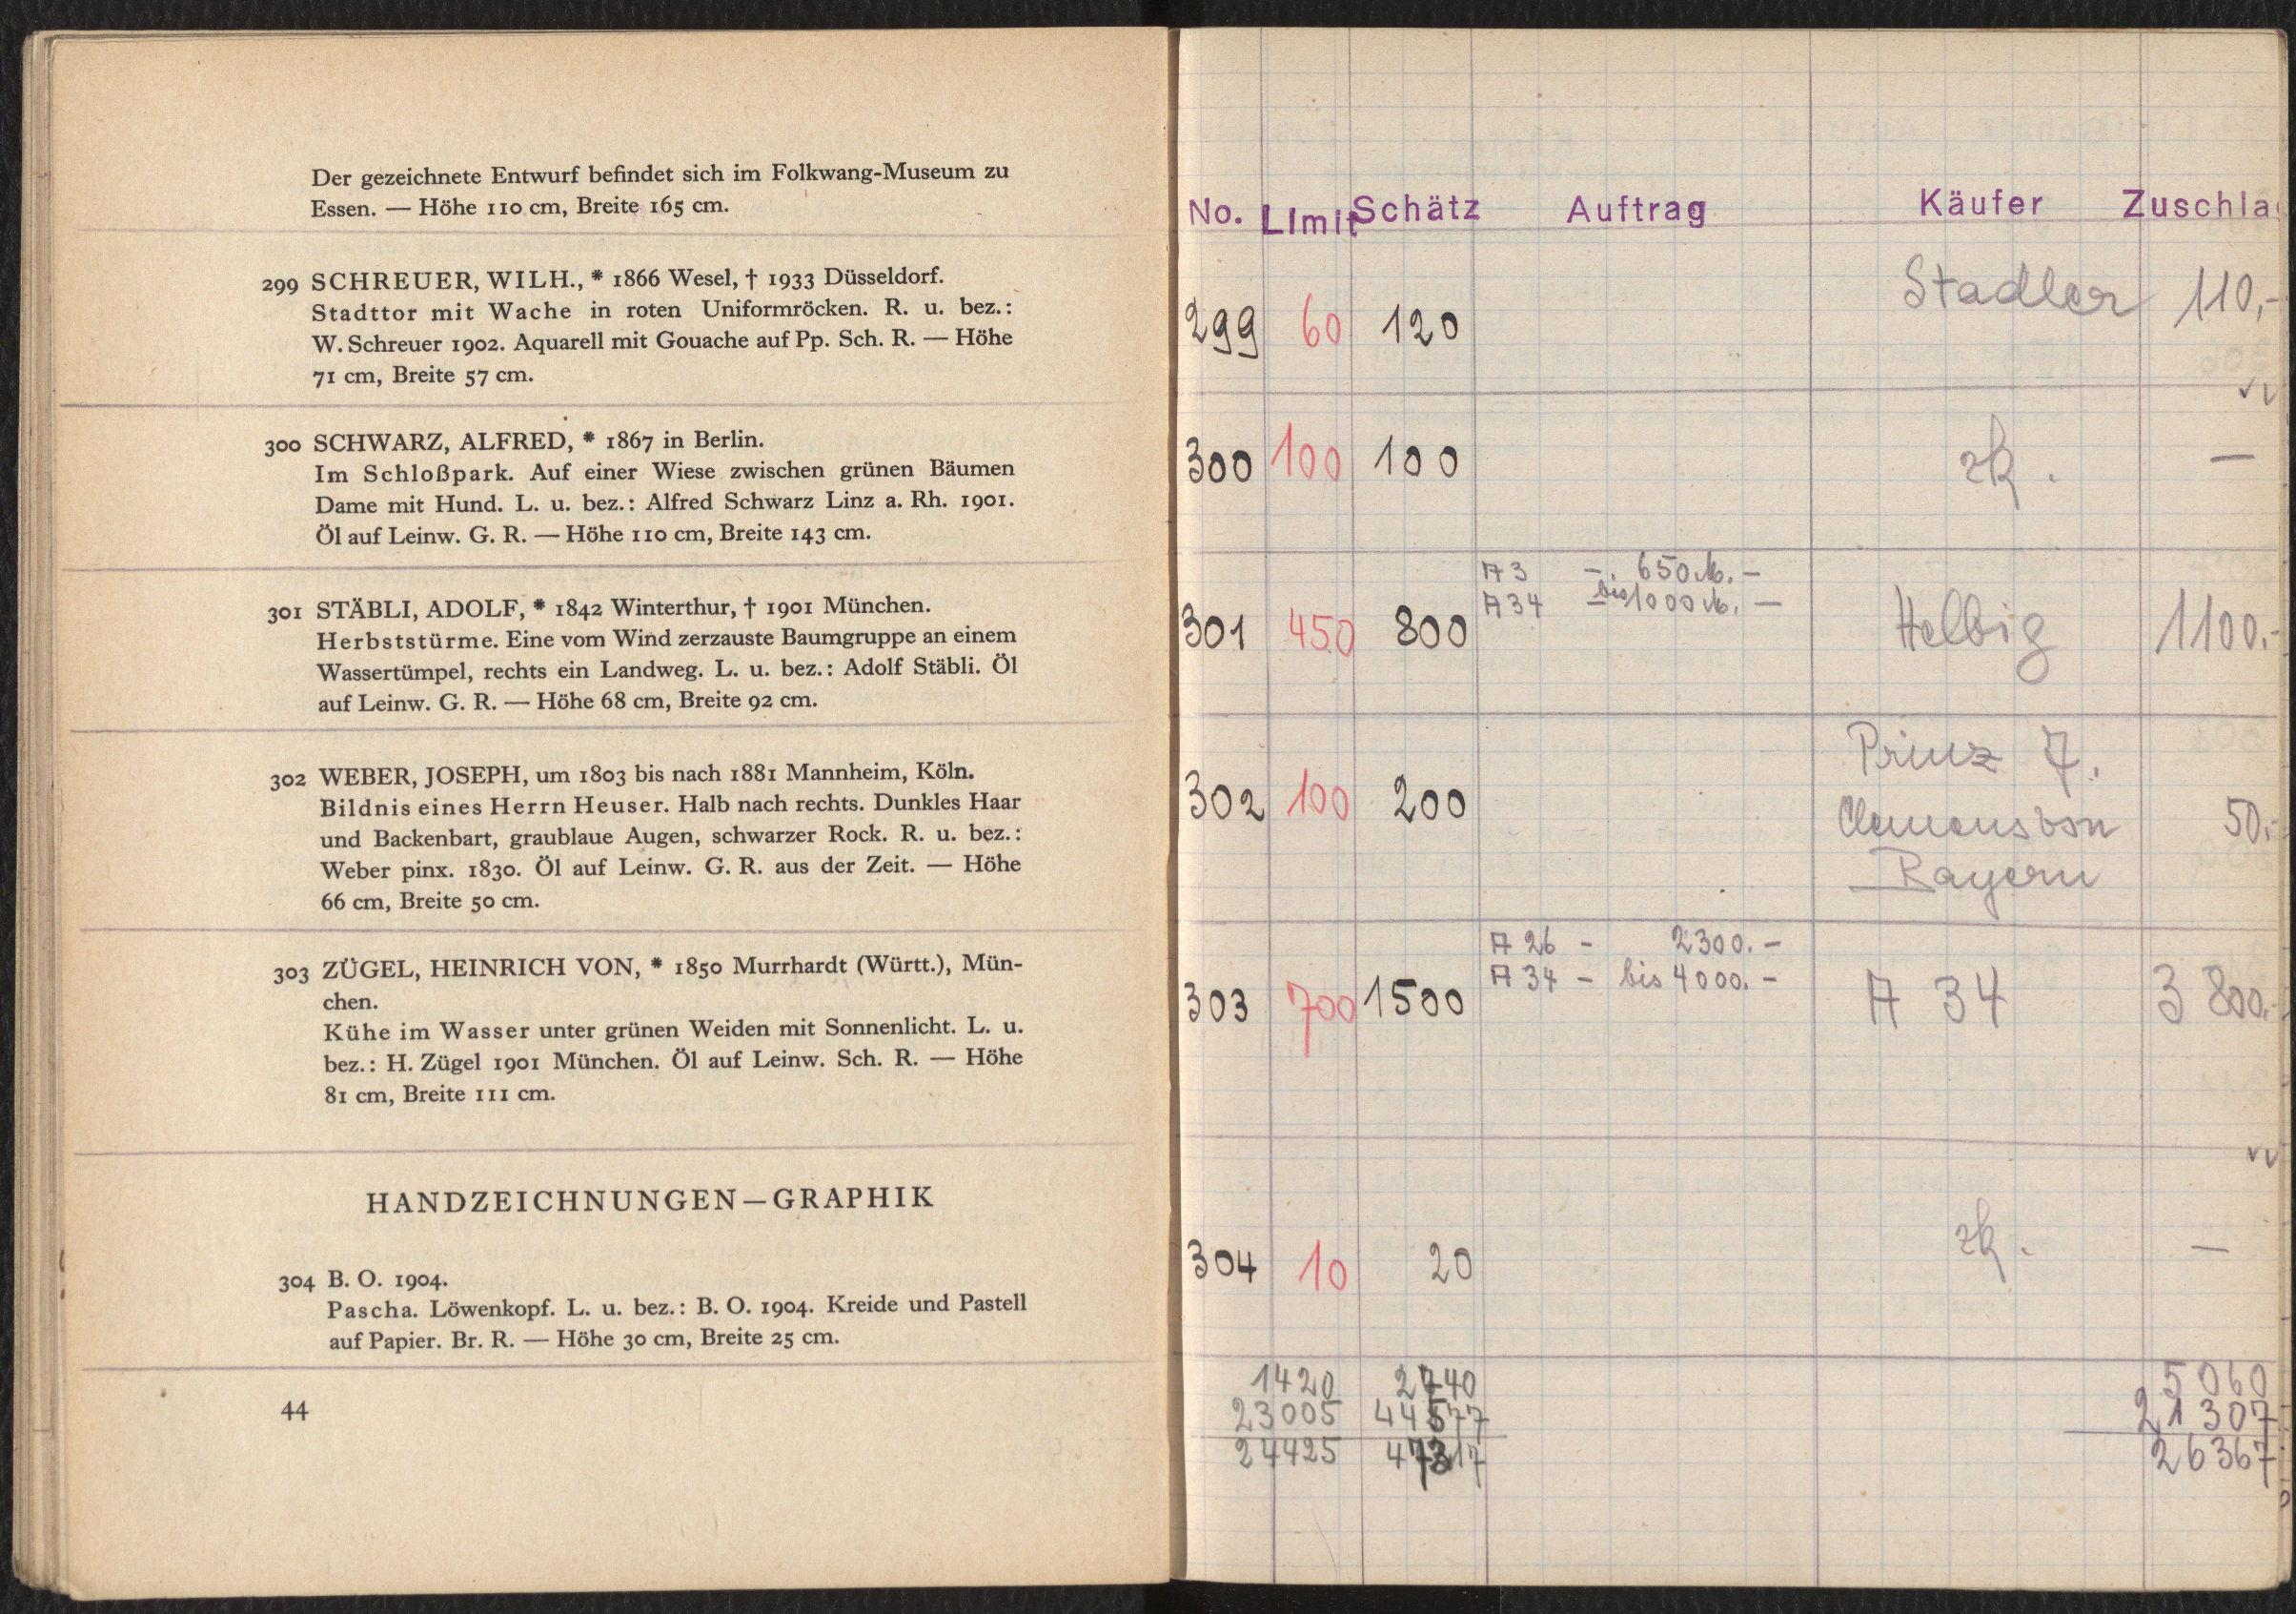 Der gezeichnete Entwurf befindet sich im Folkwang-Museum zu
Essen. — Höhe 110 cm, Breite 165 cm.
299 SCHREUER, WILH., * 1866 Wesel, † 1933 Düsseldorf.
Stadttor mit Wache in roten Uniformröcken. R. u. bez.:
W. Schreuer 1902. Aquarell mit Gouache auf Pp. Sch. R. — Höhe
71 cm, Breite 57 cm.
300 SCHWARZ, ALFRED, * 1867 in Berlin.
Im Schloßpark. Auf einer Wiese zwischen grünen Bäumen
Dame mit Hund. L. u. bez.: Alfred Schwarz Linz a. Rh. 1901.
Öl auf Leinw. G. R. — Höhe 110 cm, Breite 143 cm.
301 STÄBLI, ADOLF, * 1842 Winterthur, † 1901 München.
Herbststürme. Eine vom Wind zerzauste Baumgruppe an einem
Wassertümpel, rechts ein Landweg. L. u. bez.: Adolf Stäbli. Öl
auf Leinw. G. R. — Höhe 68 cm, Breite 92 cm.
302 WEBER, JOSEPH, um 1803 bis nach 1881 Mannheim, Köln.
Bildnis eines Herrn Heuser. Halb nach rechts. Dunkles Haar
und Backenbart, graublaue Augen, schwarzer Rock. R. u. bez.:
Weber pinx. 1830. Öl auf Leinw. G. R. aus der Zeit. — Höhe
66 cm, Breite 50 cm.
303 ZÜGEL, HEINRICH VON, * 1850 Murrhardt (Württ.), Mün-
chen.
Kühe im Wasser unter grünen Weiden mit Sonnenlicht. L. u.
bez.: H. Zügel 1901 München. Öl auf Leinw. Sch. R. — Höhe
81 cm, Breite 111 cm.
HANDZEICHNUNGEN — GRAPHIK
304 B. O. 1904.
Pascha. Löwenkopf. L. u. bez.: B. O. 1904. Kreide und Pastell
auf Papier. Br. R. — Höhe 30 cm, Breite 25 cm.
44
No. Limit Schätz Auftrag Käufer Zuschla
299 60 120 Stadler 110,-
300 100 100 zk. —
A 3 -. 650 M. -
A 34 - bis 1000 M. -
301 450 800 Helbig 1100.-
Prinz
302 100 200 Clemens von 50.-
Bayern
A 26 - 2300. -
A 34 - bis 4000. -
303 700 1500 A 34 3 800.-
304 10 20 zk. —
1420 2740 5060
23005 44577 21307
24425 47317 26367